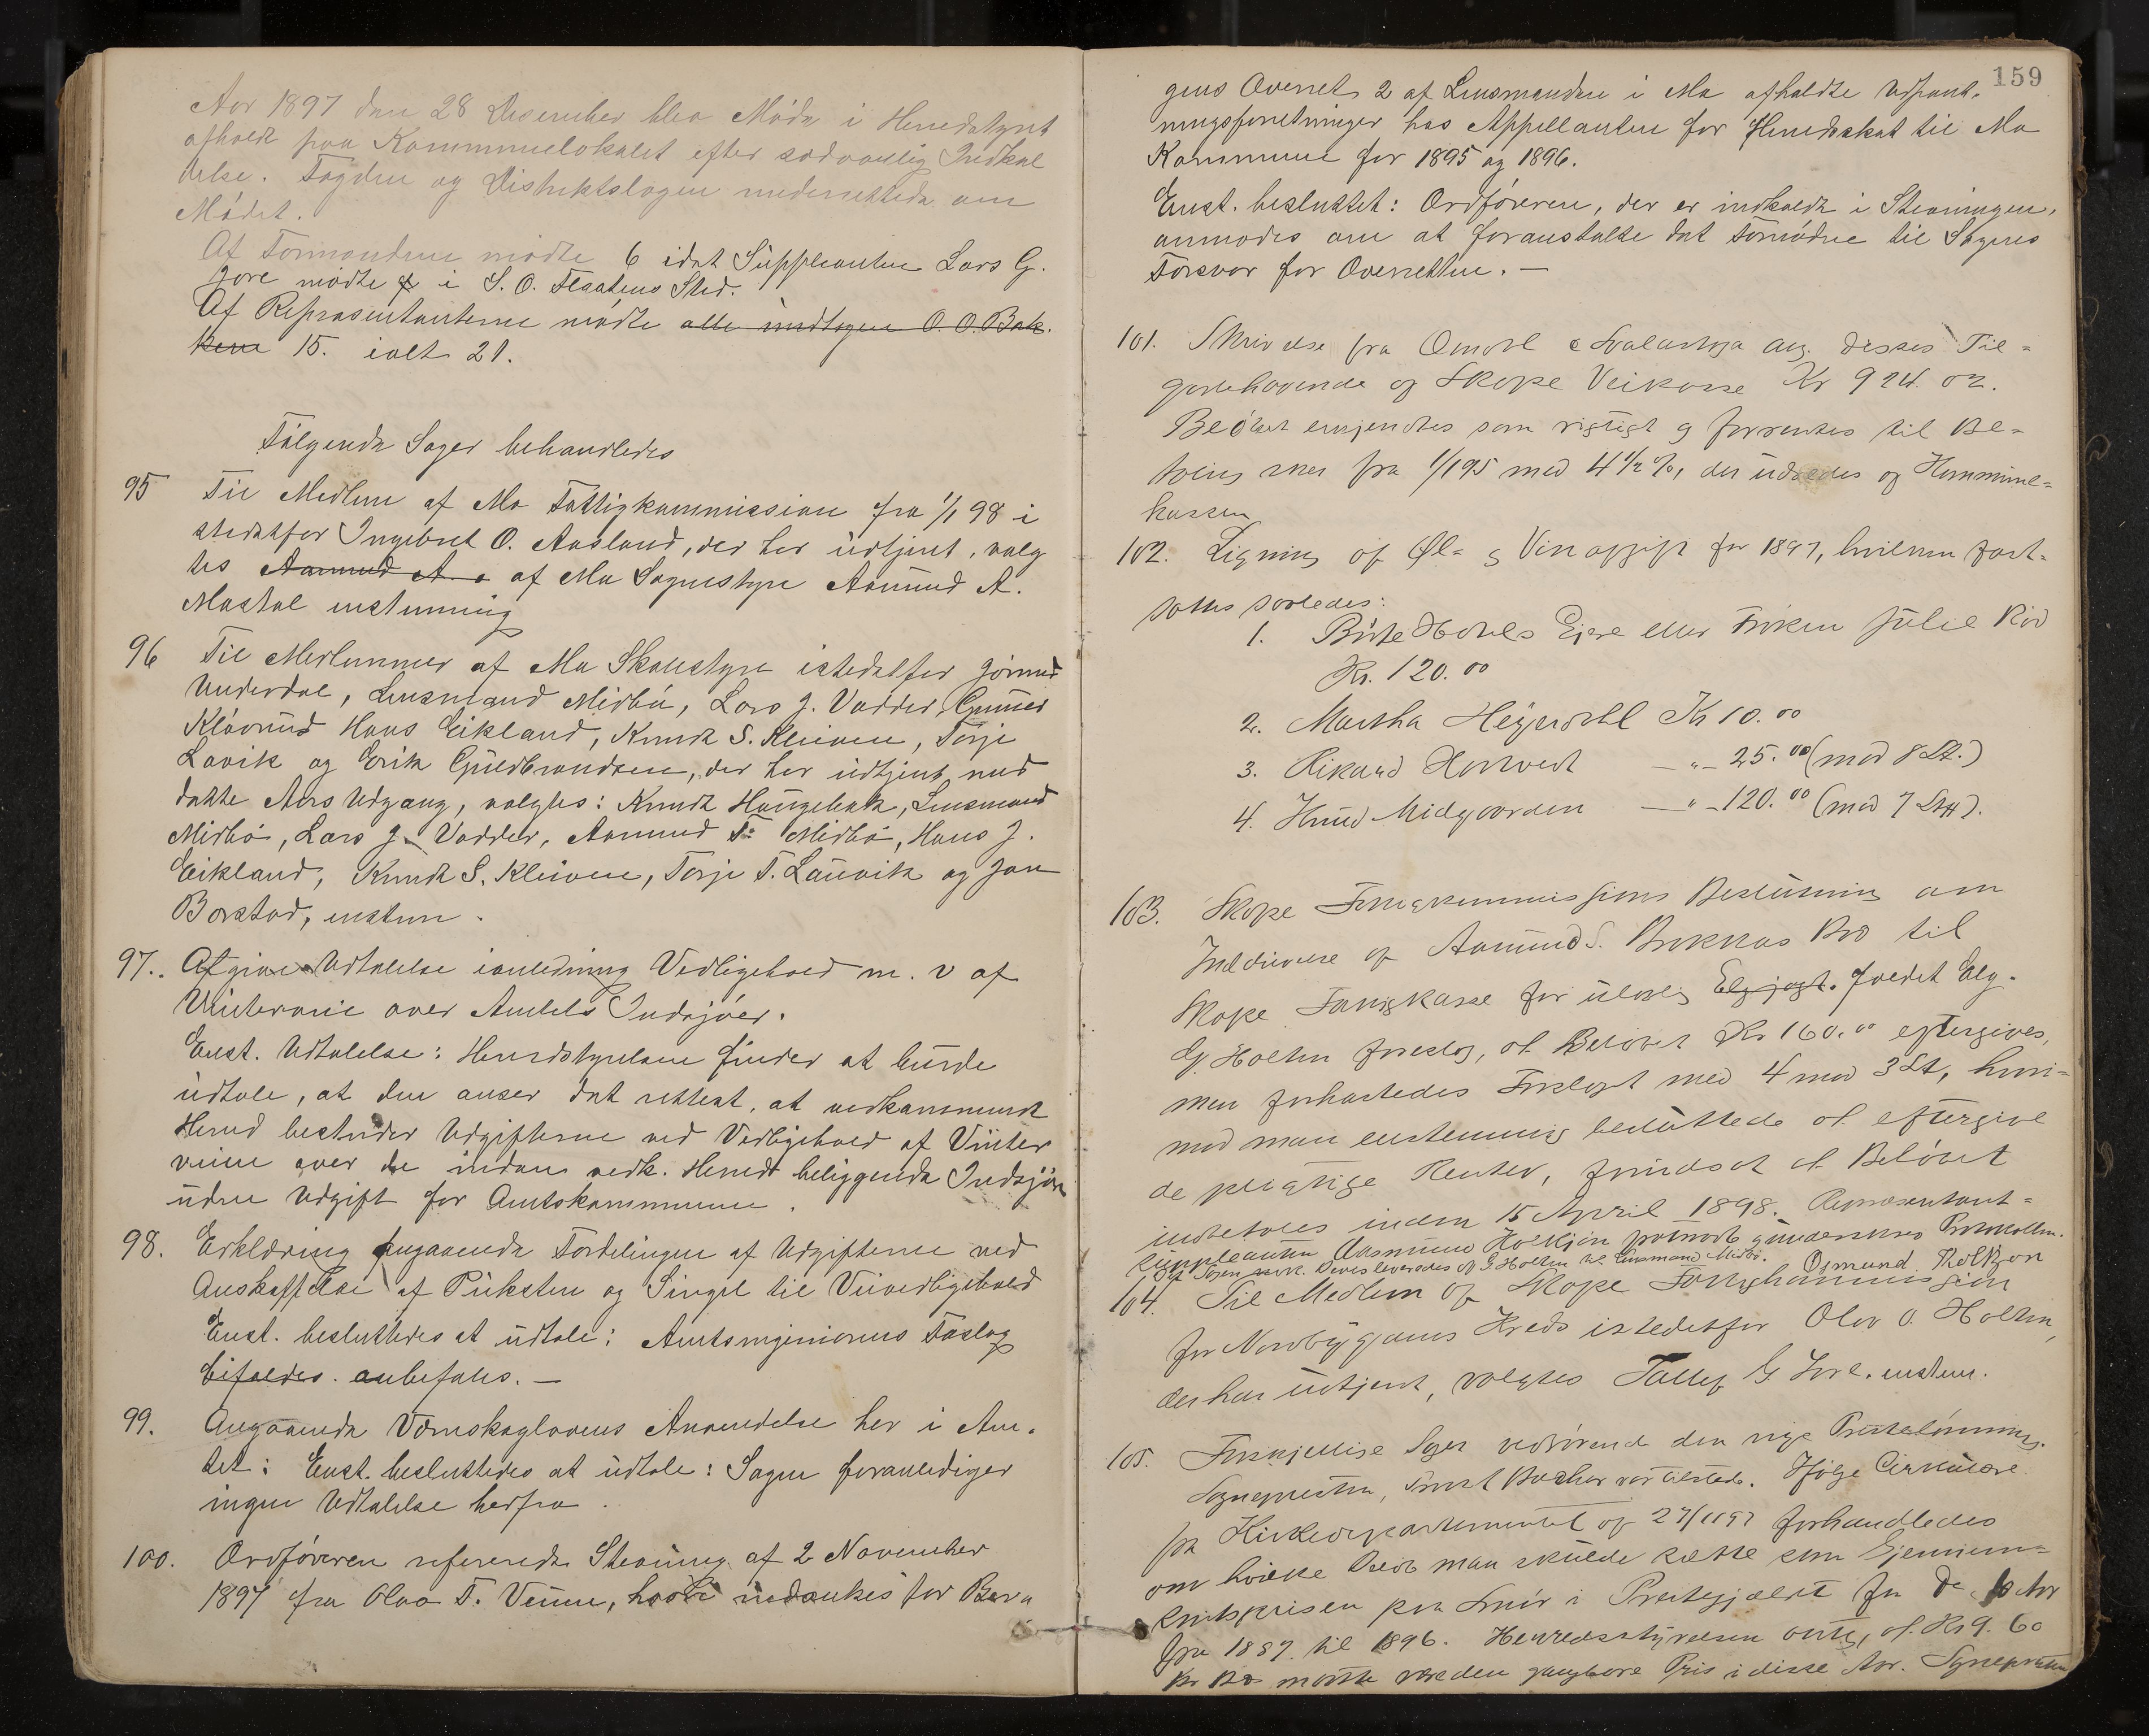 Aar 1897 den 28 Desember blev Møde i Herredstyret
afholdt paa Kommunelokalet efter sedvanlig Indkal
delse. Fogden og Distriktslægen underrettede om
Mødet.
Af Formændene mødte 6 idet Suppleanten Lars G.
mødte i S. O. Sted.
Af Repræsentanterne mødte alle undtagen O. O. Bak-
ken 15. ialt 21.
Følgende Sager behandledes
95 Til Medlem af Mo Fattigkommission fra 1/1 98 i
stedetfor Ingebret O. Aasland, der har udtjent, valg
tes Aamund A. af Mo Sognestyre Aamund A.
Mostøl enstemmig
96 Til Medlemmer af Mo Skolestyre istedetfor Jørund
Underdal, Lensmand Midbø, Lars J. Vadder, Gunner
Kløvrud Hans Eikland, Knudt S. Kleiven, Torje
Lavik og Erik Guldbrandsen, der har udtjent med
dette Aars Udgang, valgtes: Knudt Haugebak, Lensmand
Midbø, Lars J. Vadder, Aamund T. Midbø, Hans J.
Eikland, Knudt S. Kleiven, Torje T. Lauvik og Jon
Borstad, enstem.
97. Afgive Udtalelse ianledning Vedligehold m. v af
Vinterveie over Amtets Indsjøer.
Enst. Udtalelse: Herredstyrelsen finder at burde
udtale, at den anser det rettest, at vedkommende
Herred bestrider Udgifterne ved Vedligehold af Vinter
veiene over de inden vedk. Herred beliggende Indsjøer
uden Udgift for Amtskommunen.
98. Erklæring angaaende Fordelingen af Udgifterne ved
Anskaffelse af Puksten og Singel til Veivedligehold
Enst. besluttedes at udtale: Amtsingeniørens Forslag
bifaldes. anbefales. —
99. Angaaende Vornskaglovens Anvendelse her i Am-
tet: Enst. besluttedes at udtale: Sagen foranlediger
ingen Udtalelse herfra.
100. Ordføreren refererede Stevning af 2 November
1897 fra Olav T. Venne, hvori indankes for Ber-
159
gens Overret 2 af Lensmanden i Mo afholdte Udpant-
ningsforretninger hos Appellanten for Herredsskat til Mo
Kommune for 1895 og 1896.
Enst. besluttet: Ordføreren, der er indkaldt i Stevningen,
anmodes om at foranstalte det fornødne til Sagens
Forsvar for Overretten. —
101. Skrivelse fra Omdal & Svalastoga ang. disses Til-
godehavende af Skafse Veikasse Kr 924. 02.
Beløbet erkjendtes som rigtigt og forrentes til Be-
taling sker fra 1/1 95 med 4 1/2 %, der udredes af Kommune-
kassen
102. Ligning af Øl- og Vinafgift for 1897, hvilken fast-
sattes saaledes:
1. Hotels Ejere eller Frøken Julie Riis
Kr. 120.00
2. Martha Heggerdahl Kr 10.00
3. Rikard Hartvedt —„— 25.00 (mod 8 St.)
4. Knud Midgaarden —„— 120.00 (mod 7 Stt).
103. Skafse Fattigkommissions Beslutning om
Inddrivelse af Aamund S. til
Skafse Fattigkasse for ulovlig Elgjagt. fældet Elg.
G. Holten foreslog, at Beløbet Kr 160.00 eftergives,
men forkastedes Forslaget med 4 mod 3 St, hvori-
mod man enstemmig besluttede at eftergive
de pligtige Renter, forudsat at Beløbet
indbetales inden 15 April 1898. Repræsentant-
suppleanten Aasmund Holkjøn underskrev Protokollen.
Sagen overleveredes af G. Holten til Lensmand Midbø. Osmund Holkjøn
104. Til Medlem af Skafse Fattigkommission
for Nordbygdens Kreds istedetfor Olav O. Holten,
der har udtjent, valgtes Tallef G. enstem.
105. Forskjellige Sager vedrørende den nye Prestelønning.
Sognepresten, var tilstede. Ifølge Cirkulære
fra Kirkedepartementet af 27/11 97 forhandledes
om hvilke Beløb man skulde sætte som Gjennem-
snitsprisen paa Smør i Prestegjeldet for de 10 Aar
fra 1887 til 1896. Herredsstyrelsen antog, at Kr 9.60
maatte være den gangbare Pris i disse Aar. Sognepresten